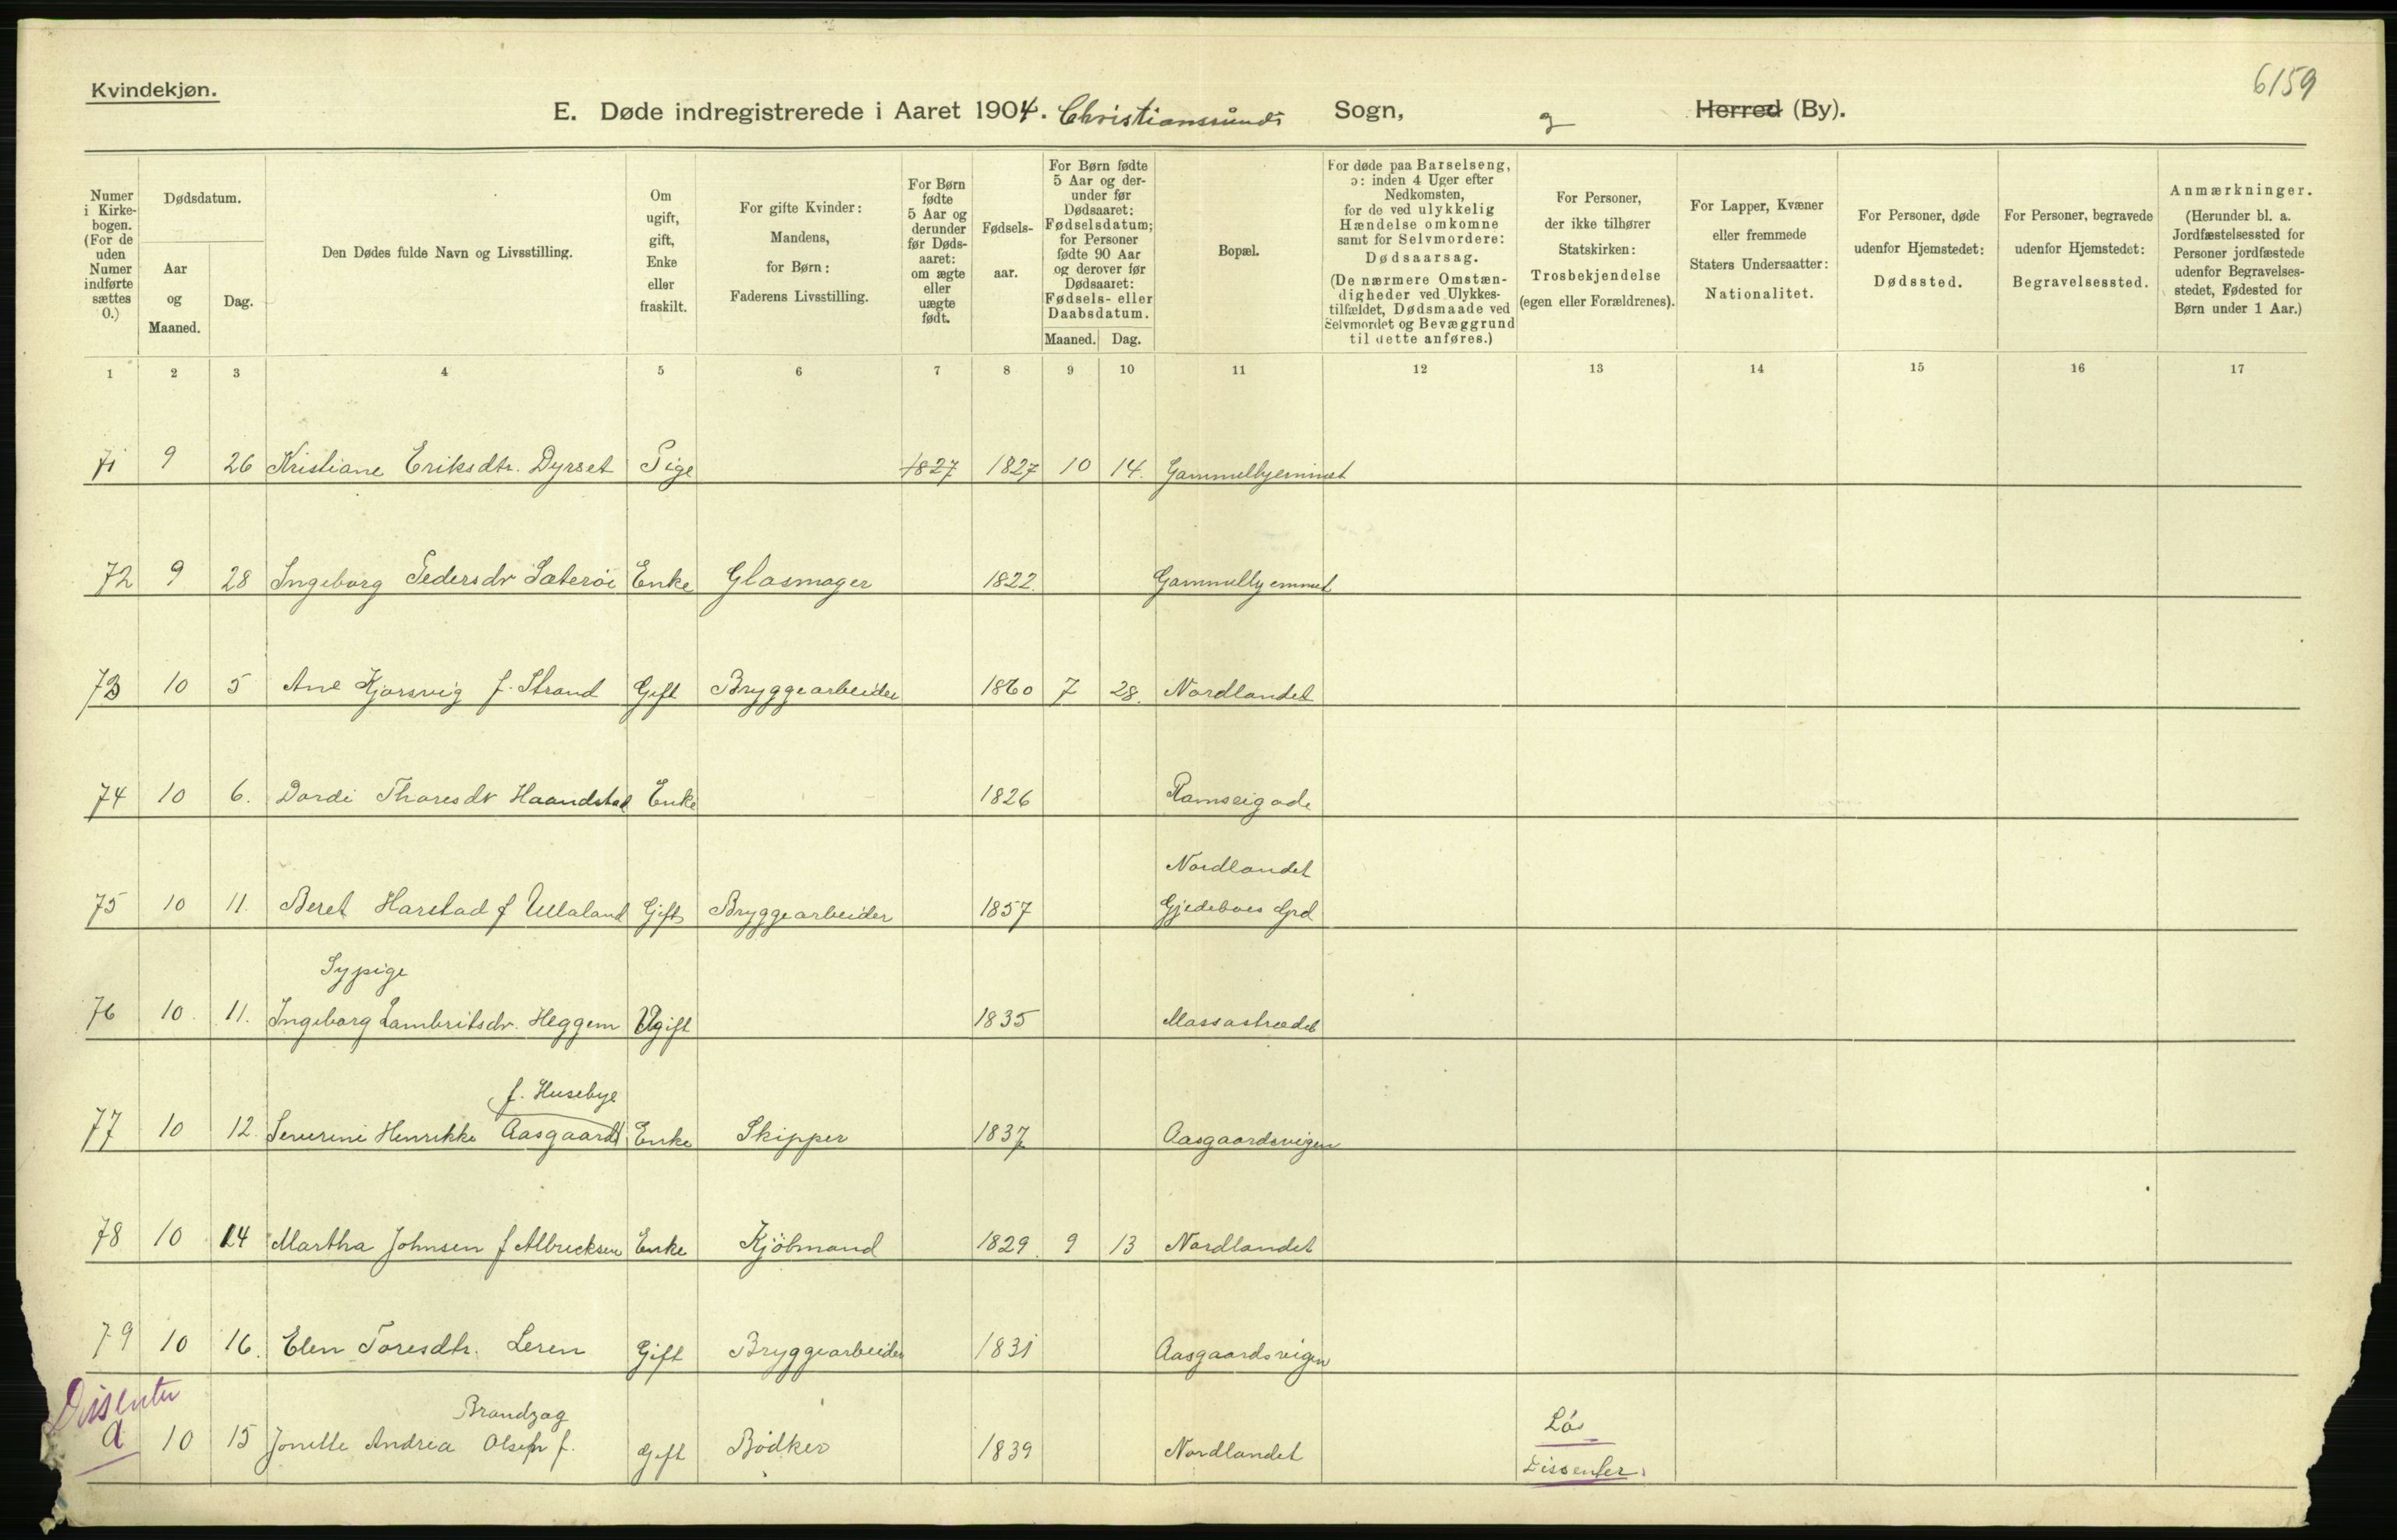 6159
Kvindekjøn.
E. Døde indregistrerede i Aaret 1904. Christianssunds Sogn, Herred (By).
Numer i Kirkebogen. (For de uden Numer indførte sættes 0.)
Dødsdatum.
Aar og Maaned.
Dag.
Den Dødes fulde Navn og Livsstilling.
Om ugift, gift, Enke eller fraskilt.
For gifte Kvinder: Mandens, for Børn: Faderens Livsstilling.
For Børn fødte 5 Aar og derunder før Dødsaaret: om ægte eller uægte født.
Fødselsaar.
For Børn fødte 5 Aar og derunder før Dødsaaret: Fødselsdatum; for Personer fødte 90 Aar og derover før Dødsaaret: Fødsels- eller Daabsdatum.
Maaned. Dag.
Bopæl.
For døde paa Barselseng, ɔ: inden 4 Uger efter Nedkomsten, for de ved ulykkelig Hændelse omkomne samt for Selvmordere: Dødsaarsag. (De nærmere Omstændigheder ved Ulykkestilfældet, Dødsmaade ved Selvmordet og Bevæggrund til dette anføres.)
For Personer, der ikke tilhører Statskirken: Trosbekjendelse (egen eller Forældrenes).
For Lapper, Kvæner eller fremmede Staters Undersaatter: Nationalitet.
For Personer, døde udenfor Hjemstedet: Dødssted.
For Personer, begravede udenfor Hjemstedet: Begravelsessted.
Anmærkninger. (Herunder bl. a. Jordfæstelsessted for Personer jordfæstede udenfor Begravelsesstedet, Fødested for Børn under 1 Aar.)
1 2 3 4 5 6 7 8 9 10 11 12 13 14 15 16 17
71 9 26 Kristiane Eriksdtr. Dyrset Pige 1827 1827 10 14.
72 9 28 Ingeborg Pedersdr Sæterøe Enke Glasmager 1822.
73 10 5 Ane Kjørsvig f. Strand Gift Bryggearbeider 1860 7 28. Nordlandet
74 10 6. Dordi Thoresdr Haandstad Enke 1826
Nordlandet
75 10 11. Beret Harstad f Ullaland Gift Bryggearbeider 1857 Gjedeboes Grd
Sypige
76 10. 11. Ingeborg Lambritsdr. Heggem Ugift 1835 Massastrædet
f. Husebye
77 10 12. Severine Henrikke Aasgaard Enke Skipper 1837 Aasgaardsvigen
78 10 14 Martha Johnsen f Albrecksen Enke Kjöbmand 1829. 9 13 Nordlandet
79 10 16. Elen Toresdtr. Leren Gift Bryggearbeider 1831 Aasgaardsvigen
Dissenter
Brandzag
a 10 15 Jonette Andrea Olsen f. Gift Bødker 1839 Nordlandet
Dissenter.